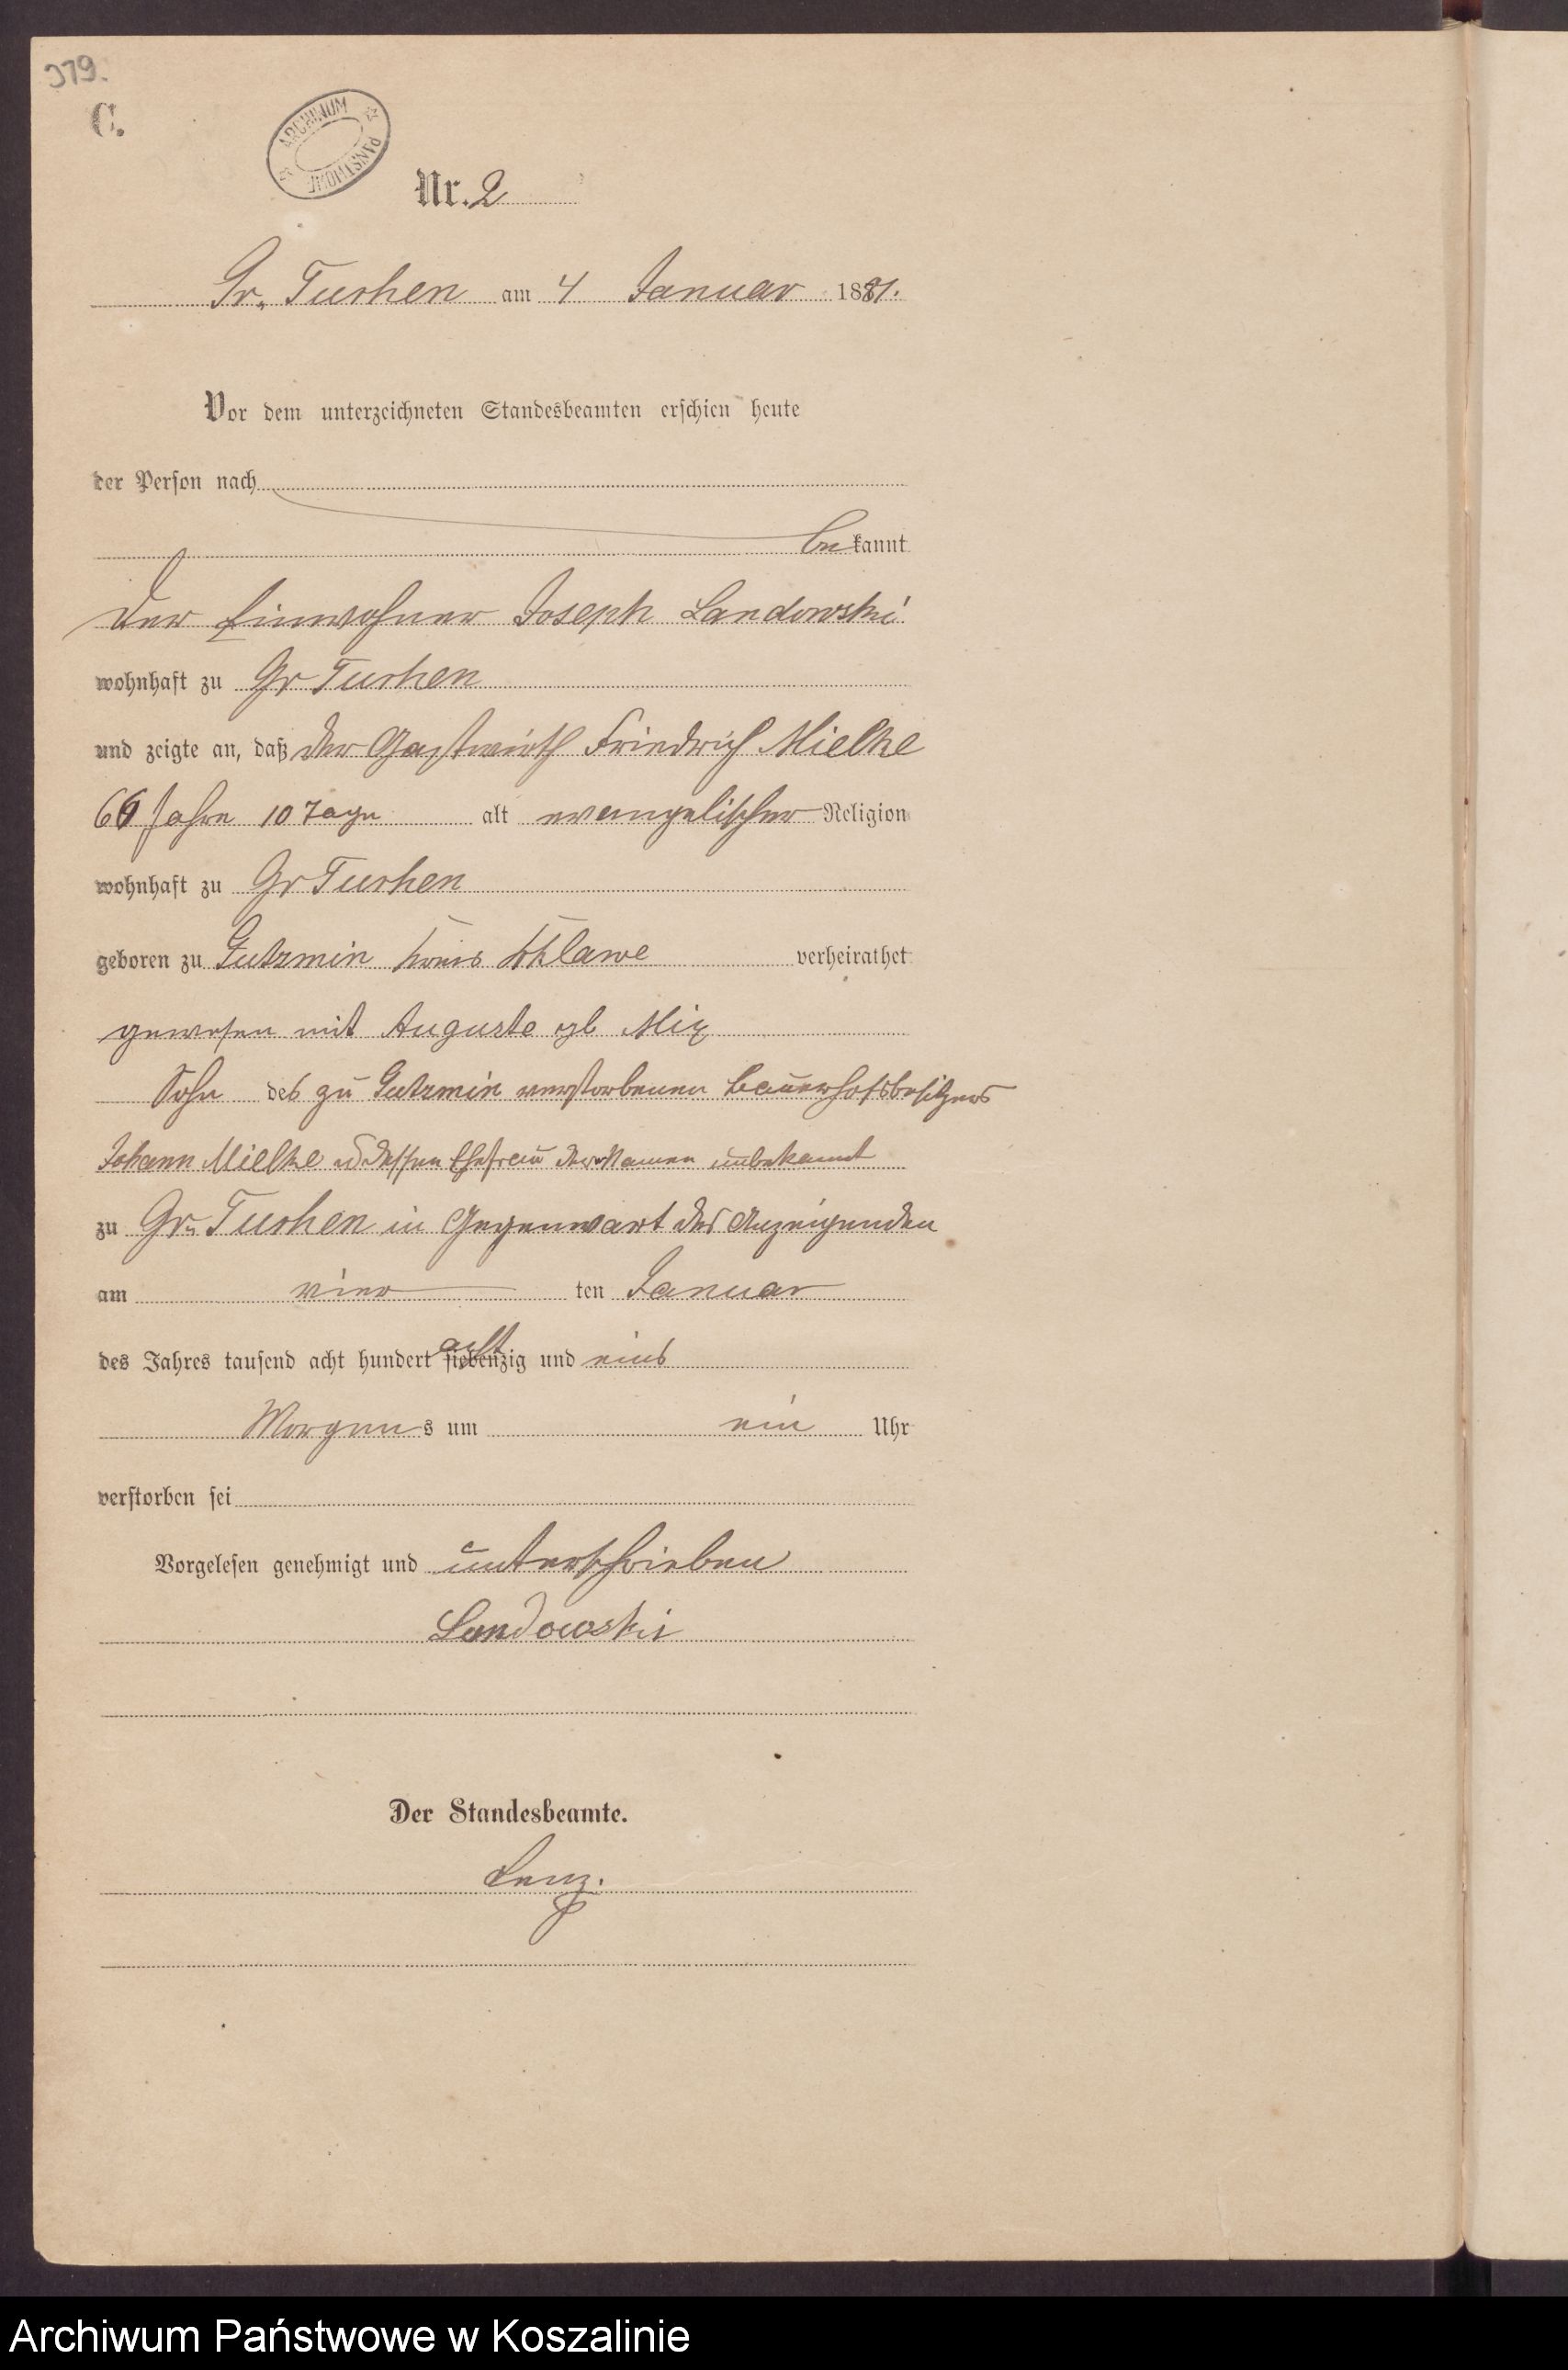 319.
C.
ARCHIWUM PAŃSTWOWE
Nr. 2
Gr. Tuchen am 4 Januar 1881.
Vor dem unterzeichneten Standesbeamten erschien heute
der Person nach
bekannt
der Einwohner Joseph Landowski
wohnhaft zu Gr Tuchen
und zeigte an, daß der Gastwirth Friedrich Mielke
Jahre 10 Tage alt evangelischer Religion
wohnhaft zu Gr Tuchen
geboren zu Gutzmin Kreis Schlawe verheirathet
gewesen mit Auguste gb
Sohn des zu Gutzmin verstorbenen Bauerhofsbesitzers
Johann Mielke u dessen Ehefrau der Namen unbekannt
zu Gr. Tuchen in Gegenwart des Anzeigenden
am vier ten Januar
des Jahres tausend acht hundert siebenzig acht und eins
Morgens um ein Uhr
verstorben sei
Vorgelesen genehmigt und unterschrieben
Landowski
Der Standesbeamte.
Lenz.
Archiwum Państwowe w Koszalinie